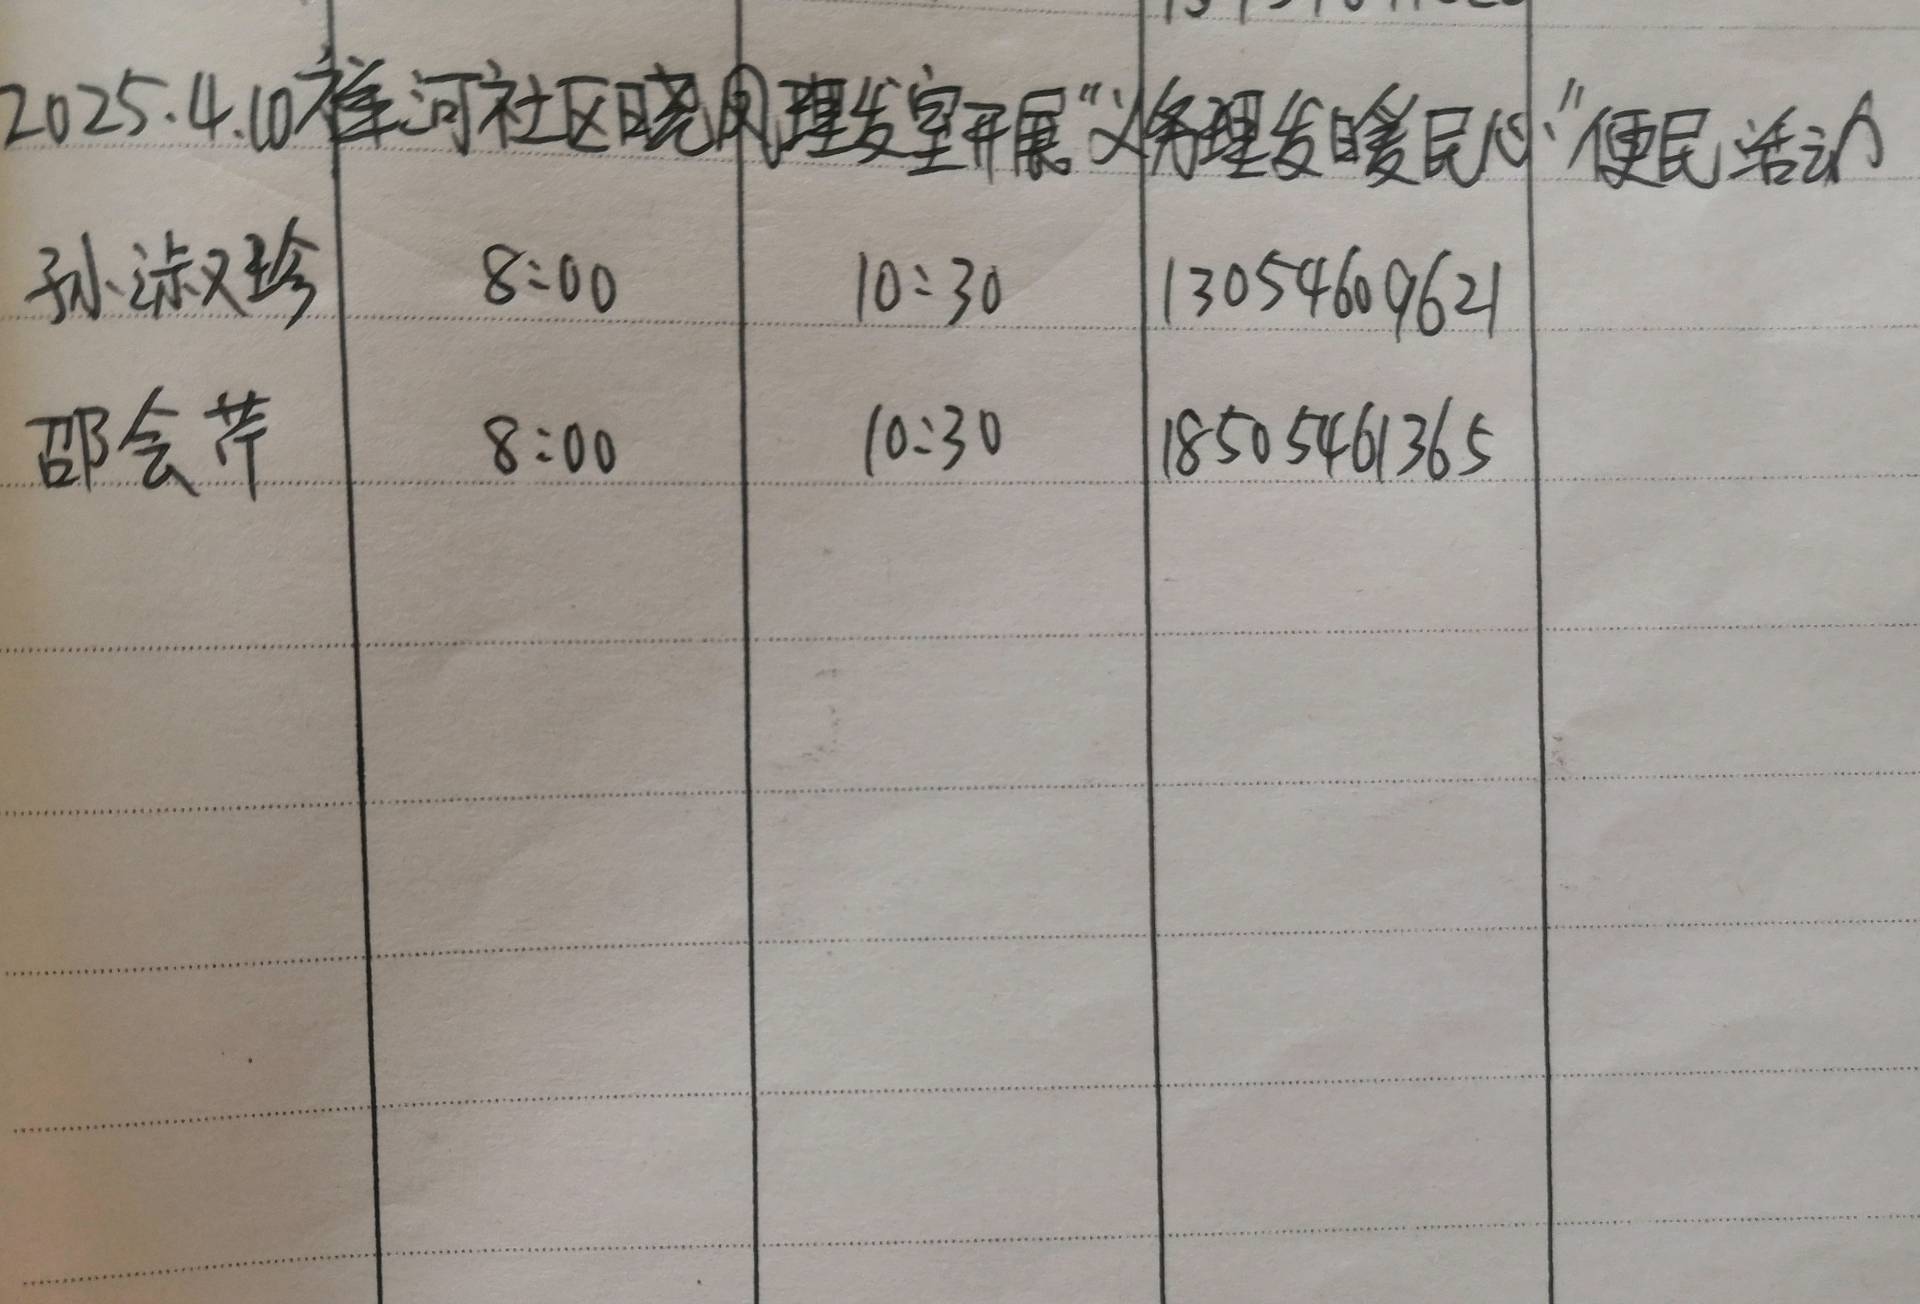 2025.4.10祥河社区晓凤理发室开展“义务理发暖民心”便民活动
孙淑珍 8:00 10:30 13054609621
邵会芹 8:00 10:30 18505461365